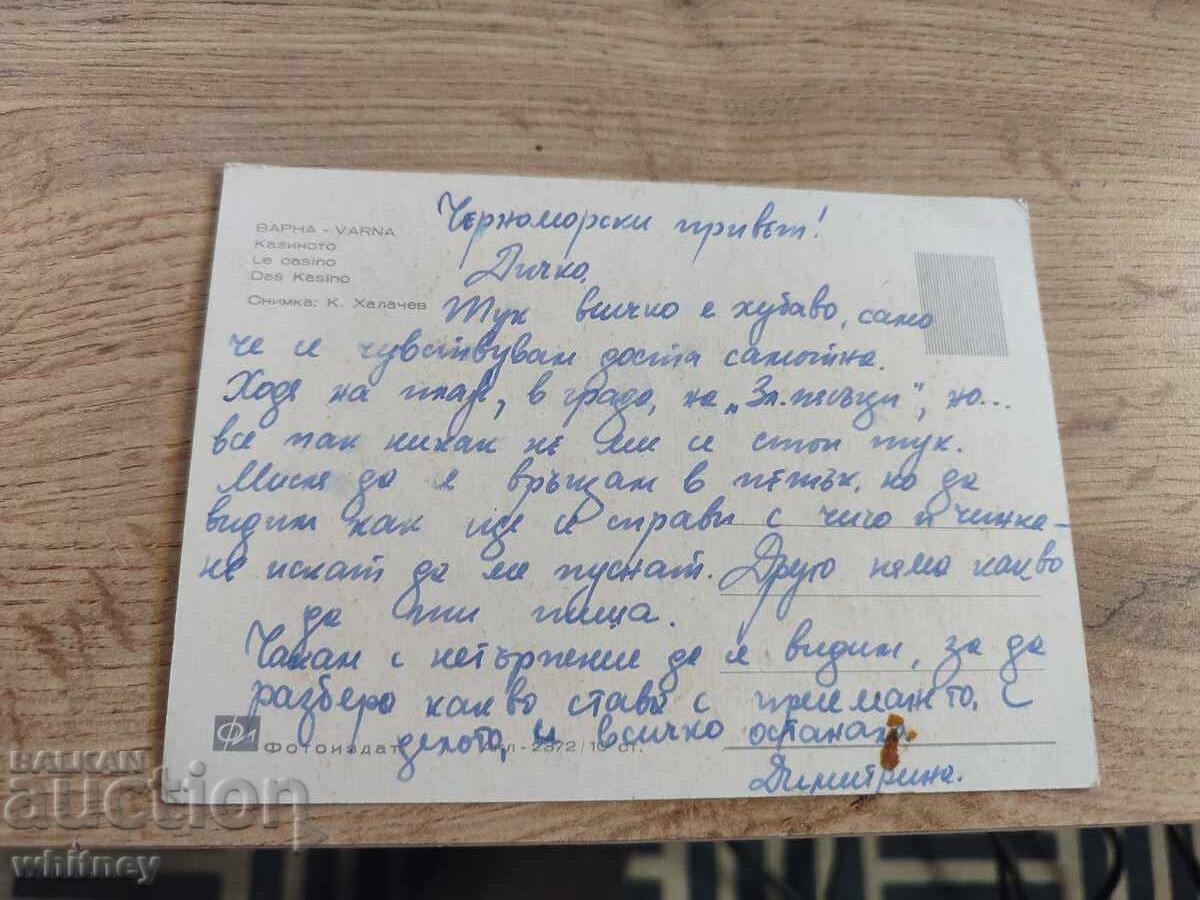 Черноморски привет!
ВАРНА - VARNA
Казиното
Le casino
Das Kasino
Снимка: К. Халачев
Дичко,
Тук всичко е хубаво, само
че се чувствувам доста самотна.
Ходя на плаж, в града, на „Зл. пясъци", но...
все пак никак не ми се стои тук.
Мисля да се връщам в петък, но да
видим как ще се справя с чичо и чинка -
не искат да ме пуснат. Друго няма какво
да ти пиша.
Чакам с нетърпение да се видим, за да
разбера какво става с приемането, с
делото, и всичко останало.
Димитрина.
Фотоиздат
2372/10 ст.
BALKAN
auction
whitney